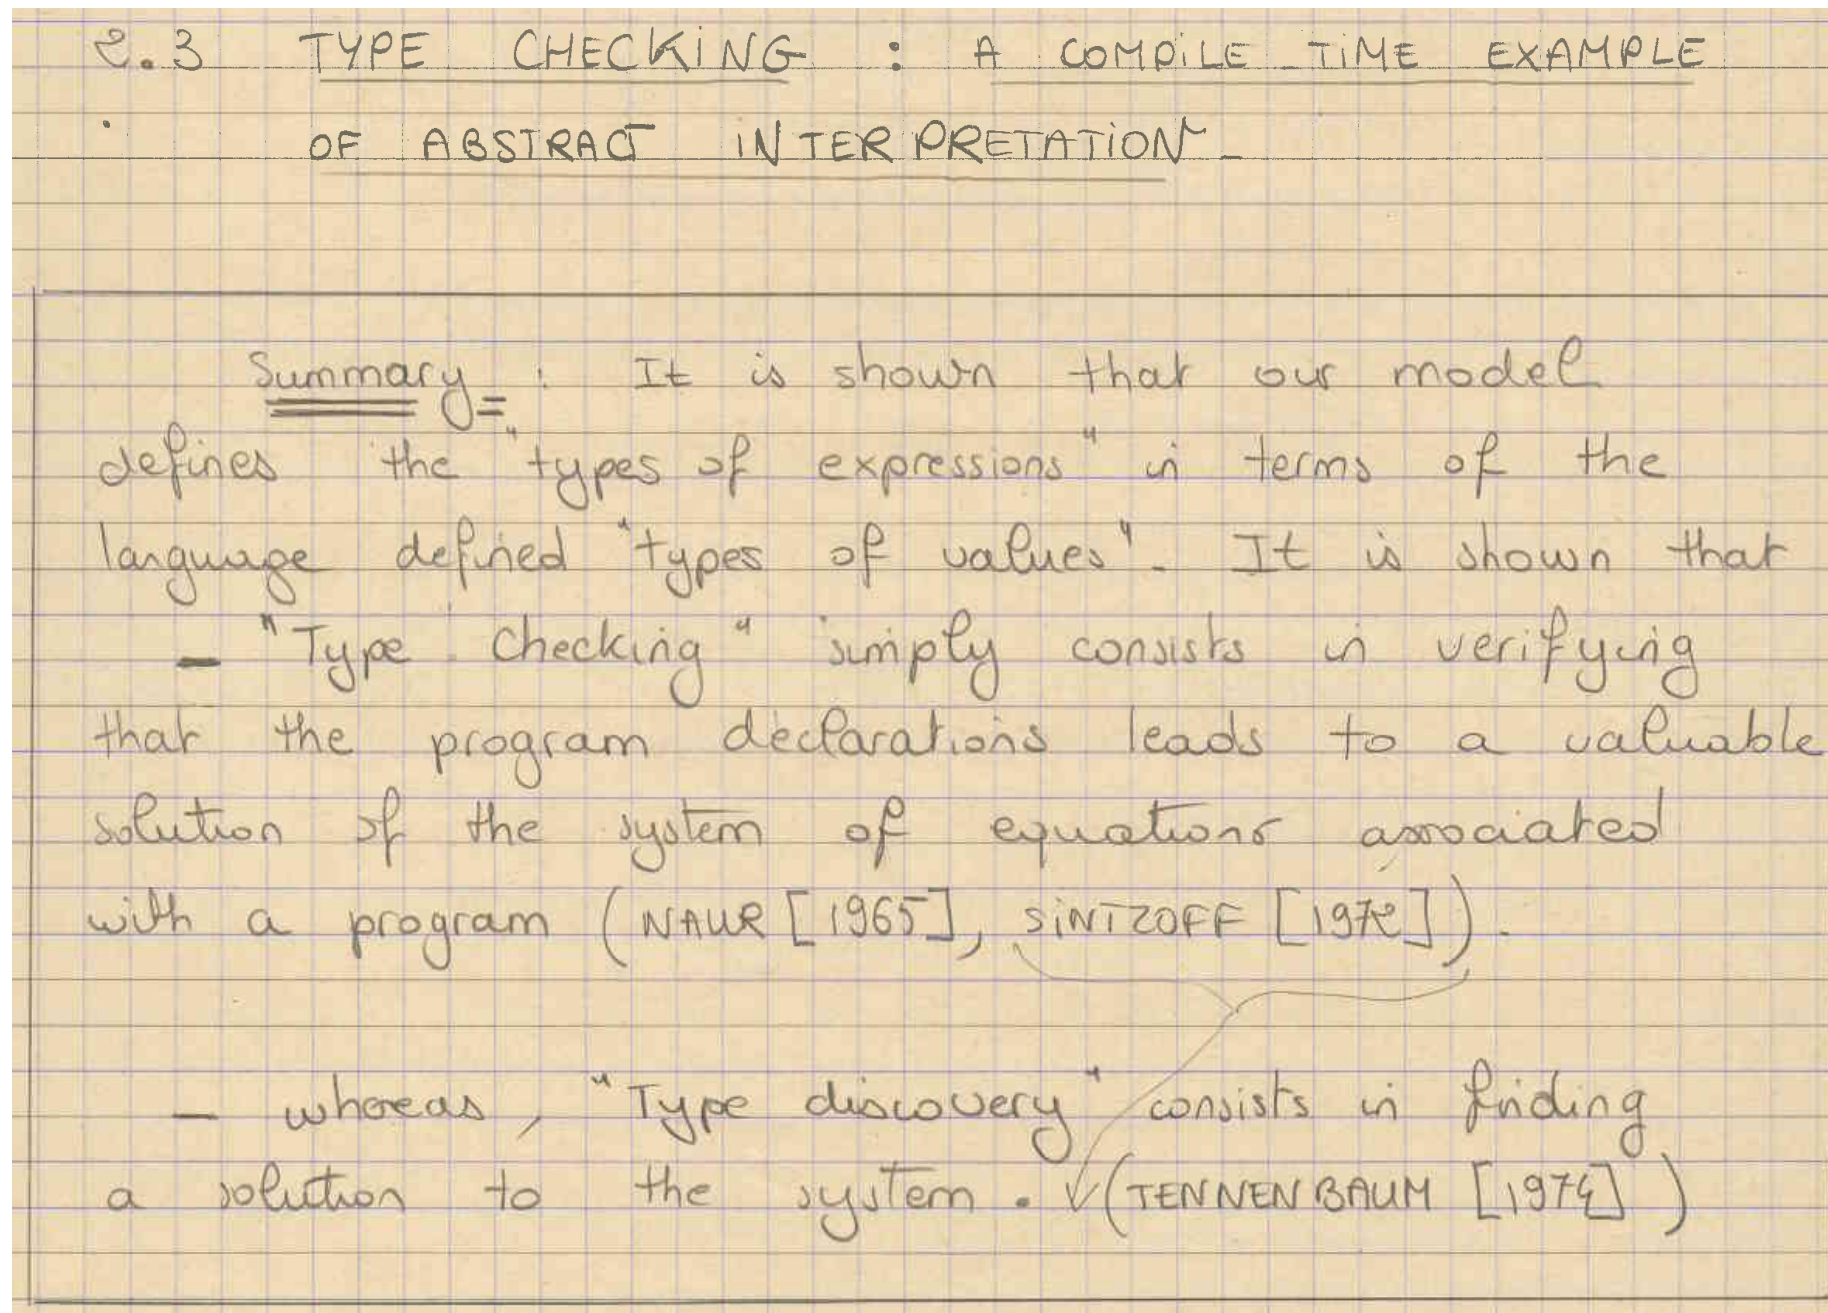 2.3 TYPE CHECKING : A COMPILE_TIME EXAMPLE
OF ABSTRACT INTERPRETATION_
Summary : It is shown that our model
defines the "types of expressions" in terms of the
language defined "types of values". It is shown that
- "Type Checking" simply consists in verifying
that the program declarations leads to a valuable
solution of the system of equations associated
with a program (NAUR [1965], SINTZOFF [1972]).
- whereas, "Type discovery" consists in finding
a solution to the system. (TENNENBAUM [1974])